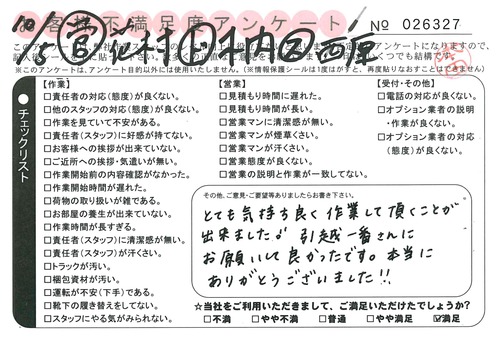 お客様不満足度アンケート
No 026327
※このアンケートは、アンケート目的以外には使用いたしません。(※情報保護シールは1度はがすと、再度貼りなおすことはできません)
チェックリスト
【作業】
□責任者の対応(態度)が良くない。
□他のスタッフの対応(態度)が良くない。
□作業を見ていて不安がある。
□責任者(スタッフ)に好感が持てない。
□お客様への挨拶が出来ていない。
□ご近所への挨拶・気遣いが無い。
□作業開始前の内容確認がなかった。
□作業開始時間が遅れた。
□荷物の取り扱いが雑である。
□お部屋の養生が出来ていない。
□作業時間が長すぎる。
□責任者(スタッフ)に清潔感が無い。
□責任者(スタッフ)が汗くさい。
□トラックが汚い。
□梱包資材が汚い。
□運転が不安(下手)である。
□靴下の履き替えをしてない。
□スタッフにやる気がみられない。
【営業】
□見積もり時間に遅れた。
□見積もり時間が長い。
□営業マンに清潔感が無い。
□営業マンが煙草くさい。
□営業マンが汗くさい。
□営業態度が良くない。
□営業の説明と作業が一致してない。
【受付・その他】
□電話の対応が良くない。
□オプション業者の説明・作業が良くない。
□オプション業者の対応(態度)が良くない。
その他、ご意見・ご要望等ありましたらお書き下さい。
とても気持ち良く作業して頂くことが
出来ました♪ 引越一番さんに
お願いして良かったです。本当に
ありがとうございました!!
☆当社をご利用いただきまして、ご満足いただけたでしょうか?
□不満 □やや不満 □普通 □やや満足 ☑満足